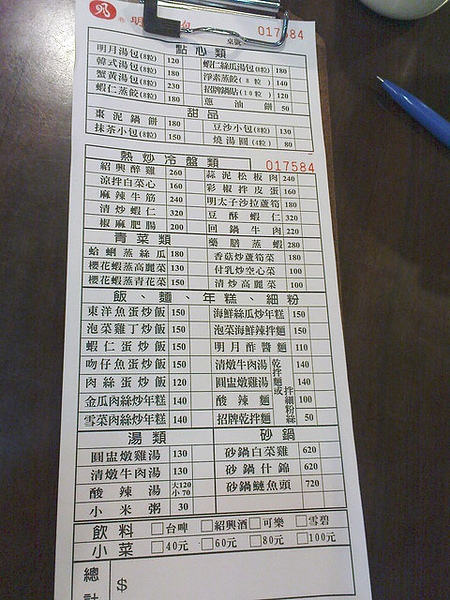 明
017584
桌號
點心類
明月湯包(8粒) 120 蝦仁絲瓜湯包(8粒) 180
韓式湯包(8粒) 180 淨素蒸餃(8粒) 140
蟹黃湯包(8粒) 230 招牌鍋貼(10粒) 120
蝦仁蒸餃(8粒) 180 蔥油餅 50
甜品
棗泥鍋餅 180 豆沙小包(8粒) 130
抹茶小包(8粒) 150 燒湯圓(4粒) 80
熱炒冷盤類 017584
紹興醉雞 260 蒜泥松板肉 240
涼拌白菜心 160 彩椒拌皮蛋 160
麻辣牛筋 240 明太子沙拉蘆筍 180
清炒蝦仁 320 豆酥蝦仁 320
椒麻肥腸 200 回鍋牛肉 220
青菜類 藥膳蒸蝦 280
蛤蜊蒸絲瓜 180 香菇炒蘆筍菜 180
櫻花蝦蒸高麗菜 130 付乳炒空心菜 100
櫻花蝦蒸青花菜 150 清炒高麗菜 100
飯、麵、年糕、細粉
東洋魚蛋炒飯 150 海鮮絲瓜炒年糕 150
泡菜雞丁炒飯 150 泡菜海鮮辣拌麵 150
蝦仁蛋炒飯 150 明月酢醬麵 110
吻仔魚蛋炒飯 150 清燉牛肉湯 乾拌麵或拌細粉絲 140
肉絲蛋炒飯 120 圓盅燉雞湯 140
金瓜肉絲炒年糕 140 酸辣麵 100
雪菜肉絲炒年糕 140 招牌乾拌麵 50
湯類 砂鍋
圓盅燉雞湯 130 砂鍋白菜雞 620
清燉牛肉湯 130 砂鍋什錦 620
酸辣湯 大120 小70 砂鍋鰱魚頭 720
小米粥 30
飲料 □台啤 □紹興酒 □可樂 □雪碧
小菜 □40元 □60元 □80元 □100元
總計 $